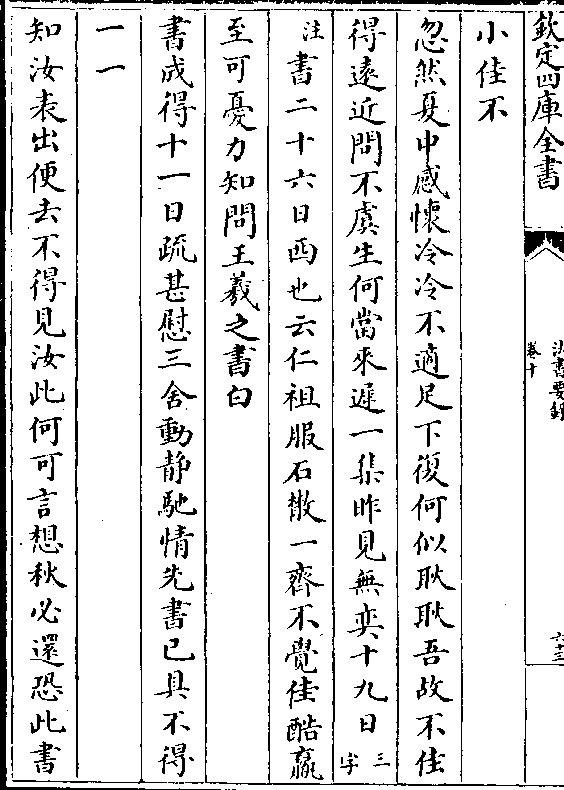 欽定四庫全書
法書要錄
卷十
六十三
小佳不
忽然夏中感懷冷冷不適足下復何似耿耿吾故不佳
得遠近問不虞生何當來遲一集昨見無奕十九日三字
注書二十六日西也云仁祖服石散一齊不覺佳酷羸
至可憂力知問王羲之書白
書成得十一日疏甚慰三舍動静馳情先書已具不得
一一
知汝表出便去不得見汝此何可言想秋必還恐此書